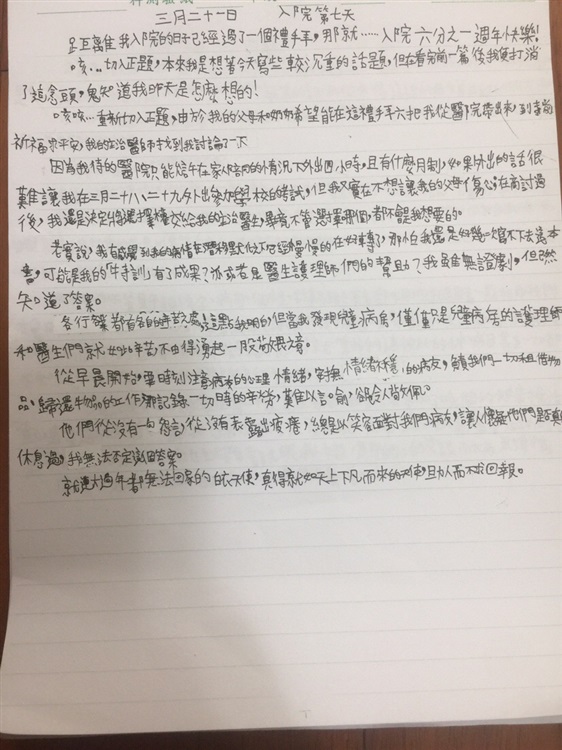 三月二十一日 入院第七天
距離我入院的日子已經過了一個禮拜，那就……入院六分之一週年快樂！
咳…切入正題，本來我是想著今天寫些較沉重的話題，但在看完前一篇後我便打消
了這念頭，鬼知道我昨天是怎麼想的！
咳咳…重新切入正題，由於我的父母和奶奶希望能在這禮拜六把我從醫院帶出來，到
祈福求平安，我的主治醫師才找到我討論了一下
因為我待的醫院只能於在家人陪同的情況下外出四小時，且有什麼月制，如果外出的話很
難讓我在三月二十八、二十九外出參加學校的考試，但我又實在不想讓我的父母傷心，在商討過
後，我還是決定將選擇權交給我的主治醫生，畢竟不管選擇哪個，都不會是我想要的。
老實說，我有感覺到我的病情在穩
書，可能是我的「特訓」有了成果？亦或者是醫生護理師們的幫助？我雖無證據，但已然
知道了答案。
各行各業都有各自的辛勞處，這點我明白，但當我發現
和醫生們就如此辛苦，不由得湧起一股敬畏之意。
從早晨開始要時刻注意病友的心理情緒，安撫「情緒不穩」的病友，
品、歸還物品的工作，那記錄一切時的辛勞，難以言喻，卻令人敬佩。
他們從沒有一句怨言，從沒有表露出疲憊，總是以笑容面對我們病友，讓人懷疑他們是否真的
休息過，我無法否定這回答案。
就連大過年都無法回家的白衣天使，真得就如天上下凡而來的天使，且為人而不求回報。